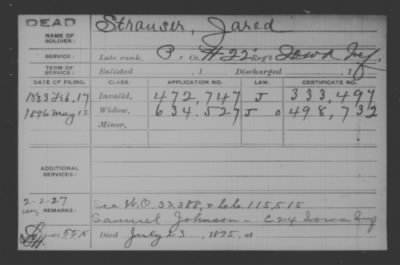 DEAD
NAME OF SOLDIER: Strauser, Jared
SERVICE: Late rank, P. Co. H 22" Reg't Iowa Inf.
TERM OF SERVICE: Enlisted , 1 Discharged , 1
DATE OF FILING. CLASS. APPLICATION NO. LAW. CERTIFICATE NO.
1883 Feb. 17 Invalid, 472,747 J 333,497
1896 May 15 Widow, 634,527 J 498,732
Minor,
ADDITIONAL SERVICES:
2-2-27
REMARKS: See W.O. 33,388,
Samuel Johnson - Iowa Inf
Died July 23, 1895, at